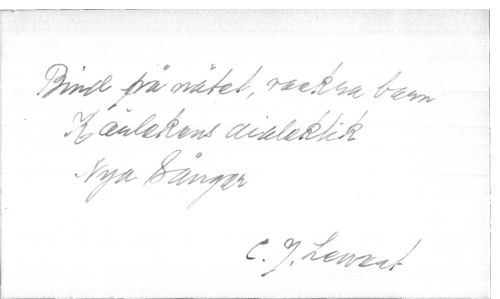 Bind på nätet, vackra barn
Kärlekens dialektik
Nya Sånger
C. J. Lewert